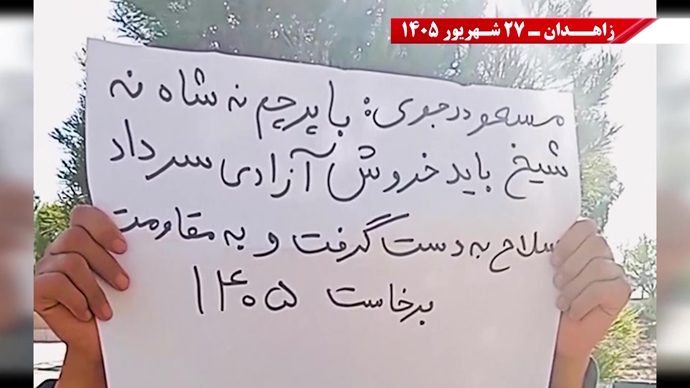 زاهدان ــ ۲۷ شهریور ۱۴۰۵
مسعود رجوی: با پرچم نه شاه نه
شیخ باید خروش آزادی سر داد
سلاح به دست گرفت و به مقاومت
برخاست ۱۴۰۵